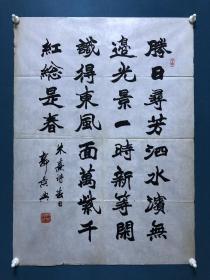 勝日尋芳泗水濱無
邊光景一時新等閒
識得東風面萬紫千
紅總是春
朱熹詩春日